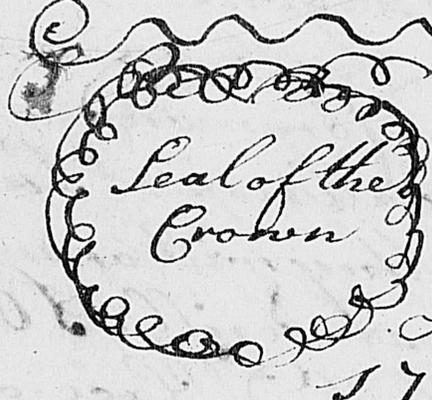 Seal of the
Crown
17